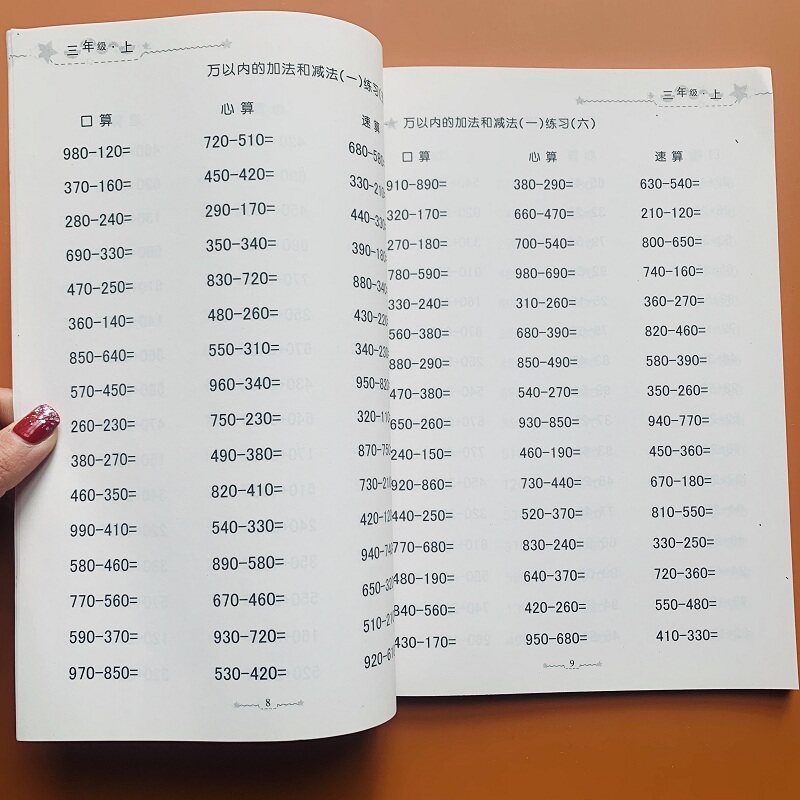 三年级·上
万以内的加法和减法(一)练习(
口算 心算 速算
980-120= 720-510= 680-580=
370-160= 450-420= 330-210
280-240= 290-170= 440-330
690-330= 350-340= 390-180
470-250= 830-720= 880-340
360-140= 480-260= 430-220
850-640= 550-310= 340-230
570-450= 960-340= 950-820
260-230= 750-230= 320-110
380-270= 490-380= 870-750
460-350= 820-410= 730-210
990-410= 540-330= 420-120
580-460= 890-580= 940-740
770-560= 670-460= 650-320
590-370= 930-720= 510-210
970-850= 530-420= 920-610
8
三年级·上
万以内的加法和减法(一)练习(六)
口算 心算 速算
910-890= 380-290= 630-540=
320-170= 660-470= 210-120=
270-180= 700-540= 800-650=
780-590= 980-690= 740-160=
330-240= 310-260= 360-270=
560-380= 680-390= 820-460=
880-290= 850-490= 580-390=
470-380= 540-270= 350-260=
650-260= 930-850= 940-770=
240-150= 460-190= 450-360=
920-860= 730-440= 670-180=
440-250= 520-370= 810-550=
770-680= 830-240= 330-250=
480-190= 640-370= 720-360=
840-560= 420-260= 550-480=
430-170= 950-680= 410-330=
9